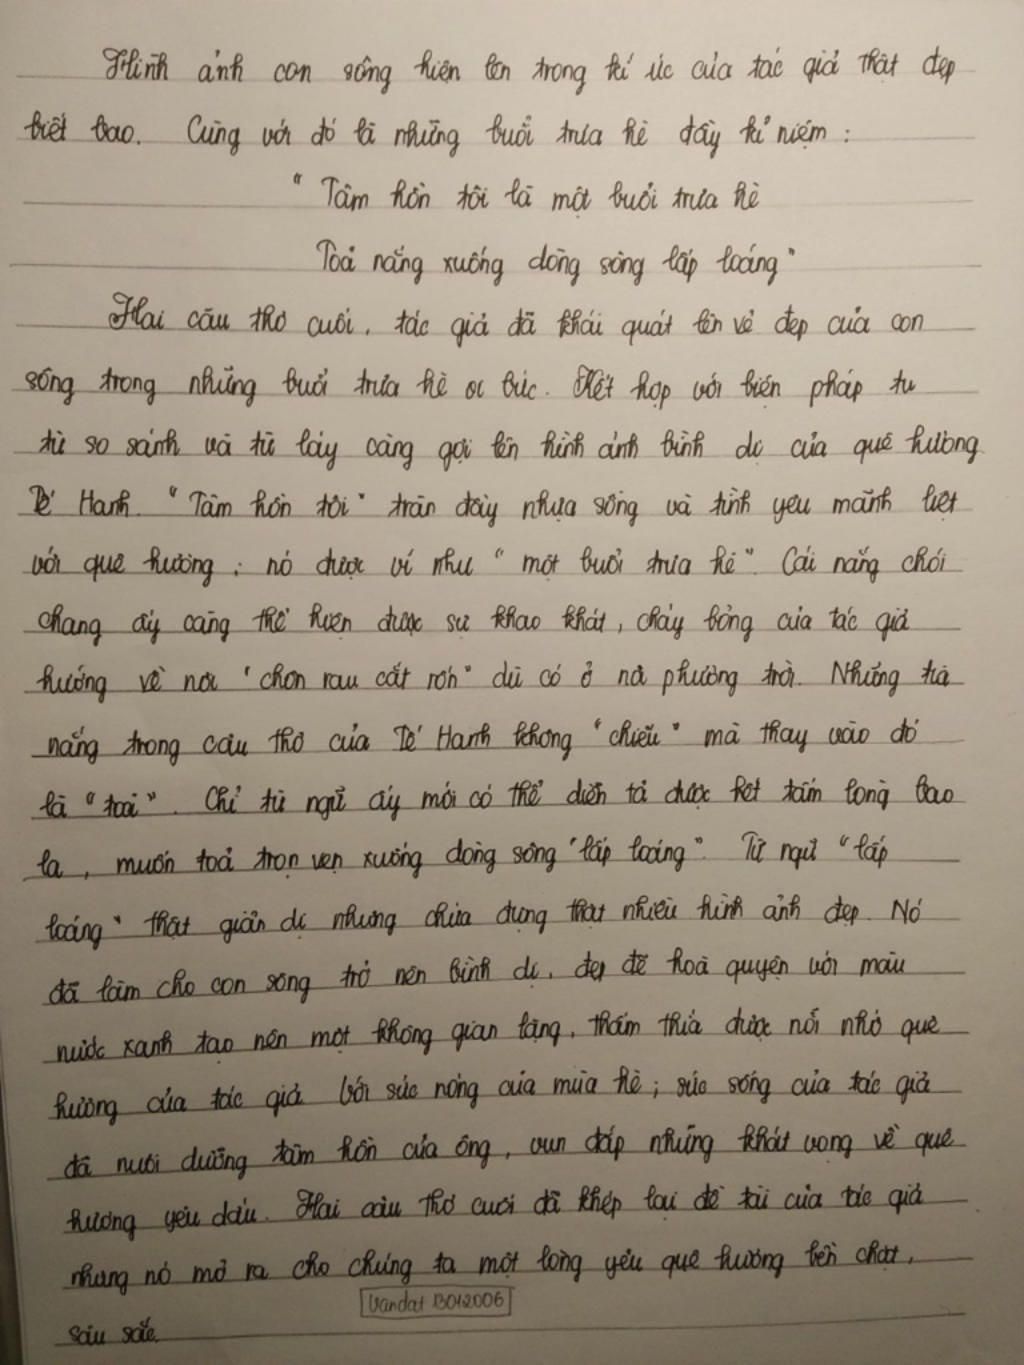 Hình ảnh con sông hiện lên trong kí ức của tác giả thật đẹp
biết bao. Cùng với đó là những buổi trưa hè đầy kỉ niệm :
" Tâm hồn tôi là một buổi trưa hè
Toả nắng xuống dòng sông lấp loáng "
Hai câu thơ cuối, tác giả đã khái quát lên vẻ đẹp của con
sông trong những buổi trưa hè oi bức. Kết hợp với biện pháp tu
từ so sánh và từ láy càng gợi lên hình ảnh bình dị của quê hương
Tế Hanh. "Tâm hồn tôi" tràn đầy nhựa sống và tình yêu mãnh liệt
với quê hương ; nó được ví như " một buổi trưa hè ". Cái nắng chói
chang ấy càng thể hiện được sự khao khát, cháy bỏng của tác giả
hướng về nơi " chôn rau cắt rốn " dù có ở nơi phương trời. Những tia
nắng trong câu thơ của Tế Hanh không " chiếu " mà thay vào đó
là " toả ". Chỉ từ ngữ ấy mới có thể diễn tả được hết tấm lòng bao
la , muốn toả trọn vẹn xuống dòng sông "lấp loáng". Từ ngữ "lấp
loáng" thật giản dị nhưng chứa đựng thật nhiều hình ảnh đẹp. Nó
đã làm cho con sông trở nên bình dị, đẹp đẽ hoà quyện với màu
nước xanh tạo nên một không gian lặng, thấm thía được nỗi nhớ quê
hương của tác giả. Với sức nóng của mùa hè ; sức sống của tác giả
đã nuôi dưỡng tâm hồn của ông, vun đắp những khát vọng về quê
hương yêu dấu. Hai câu thơ cuối đã khép lại đề tài của tác giả
nhưng nó mở ra cho chúng ta một lòng yêu quê hương bền chặt,
sâu sắc.
Vandat 13012006